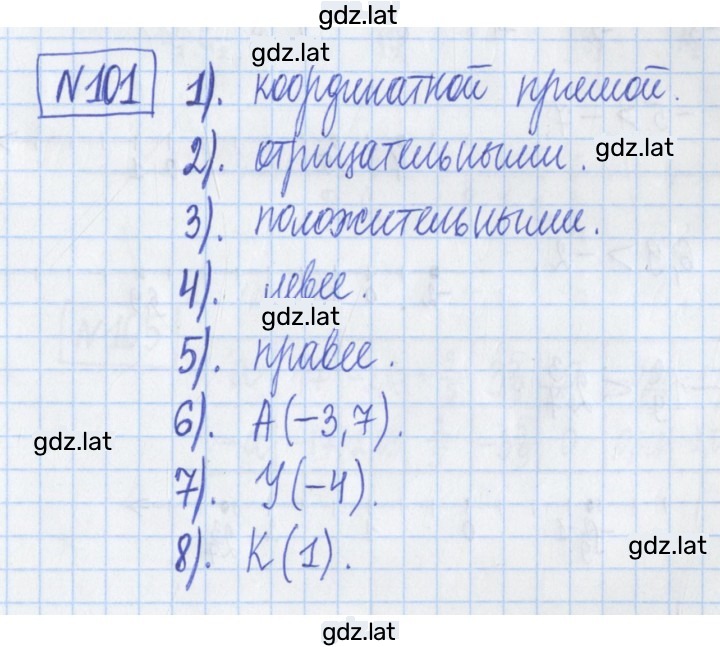 gdz.lat
gdz.lat
№101 1). координатной прямой.
2). отрицательными. gdz.lat
3). положительными.
4). левее.
gdz.lat
5). правее.
6). А(-3,7).
gdz.lat
7). У(-4).
8). К(1). gdz.lat
gdz.lat